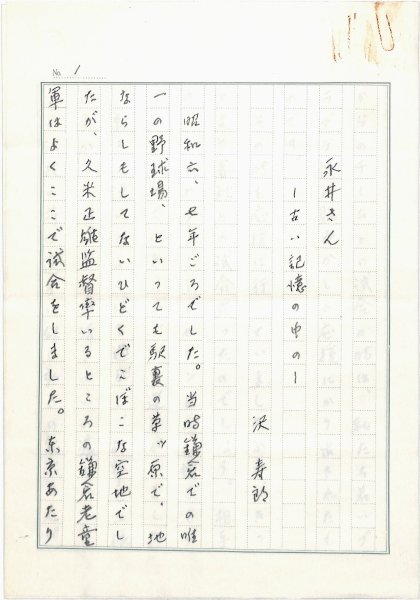 No. 1
永井さん
―古い記憶の中の―
沢 寿郎
昭和六、七年ごろでした。当時鎌倉での唯
一の野球場、といっても駅裏の草ッ原で、地
ならしもしてないひどくでこぼこな空地でし
たが、久米正雄監督率いるところの鎌倉老童
軍はよくここで試合をしました。東京あたり